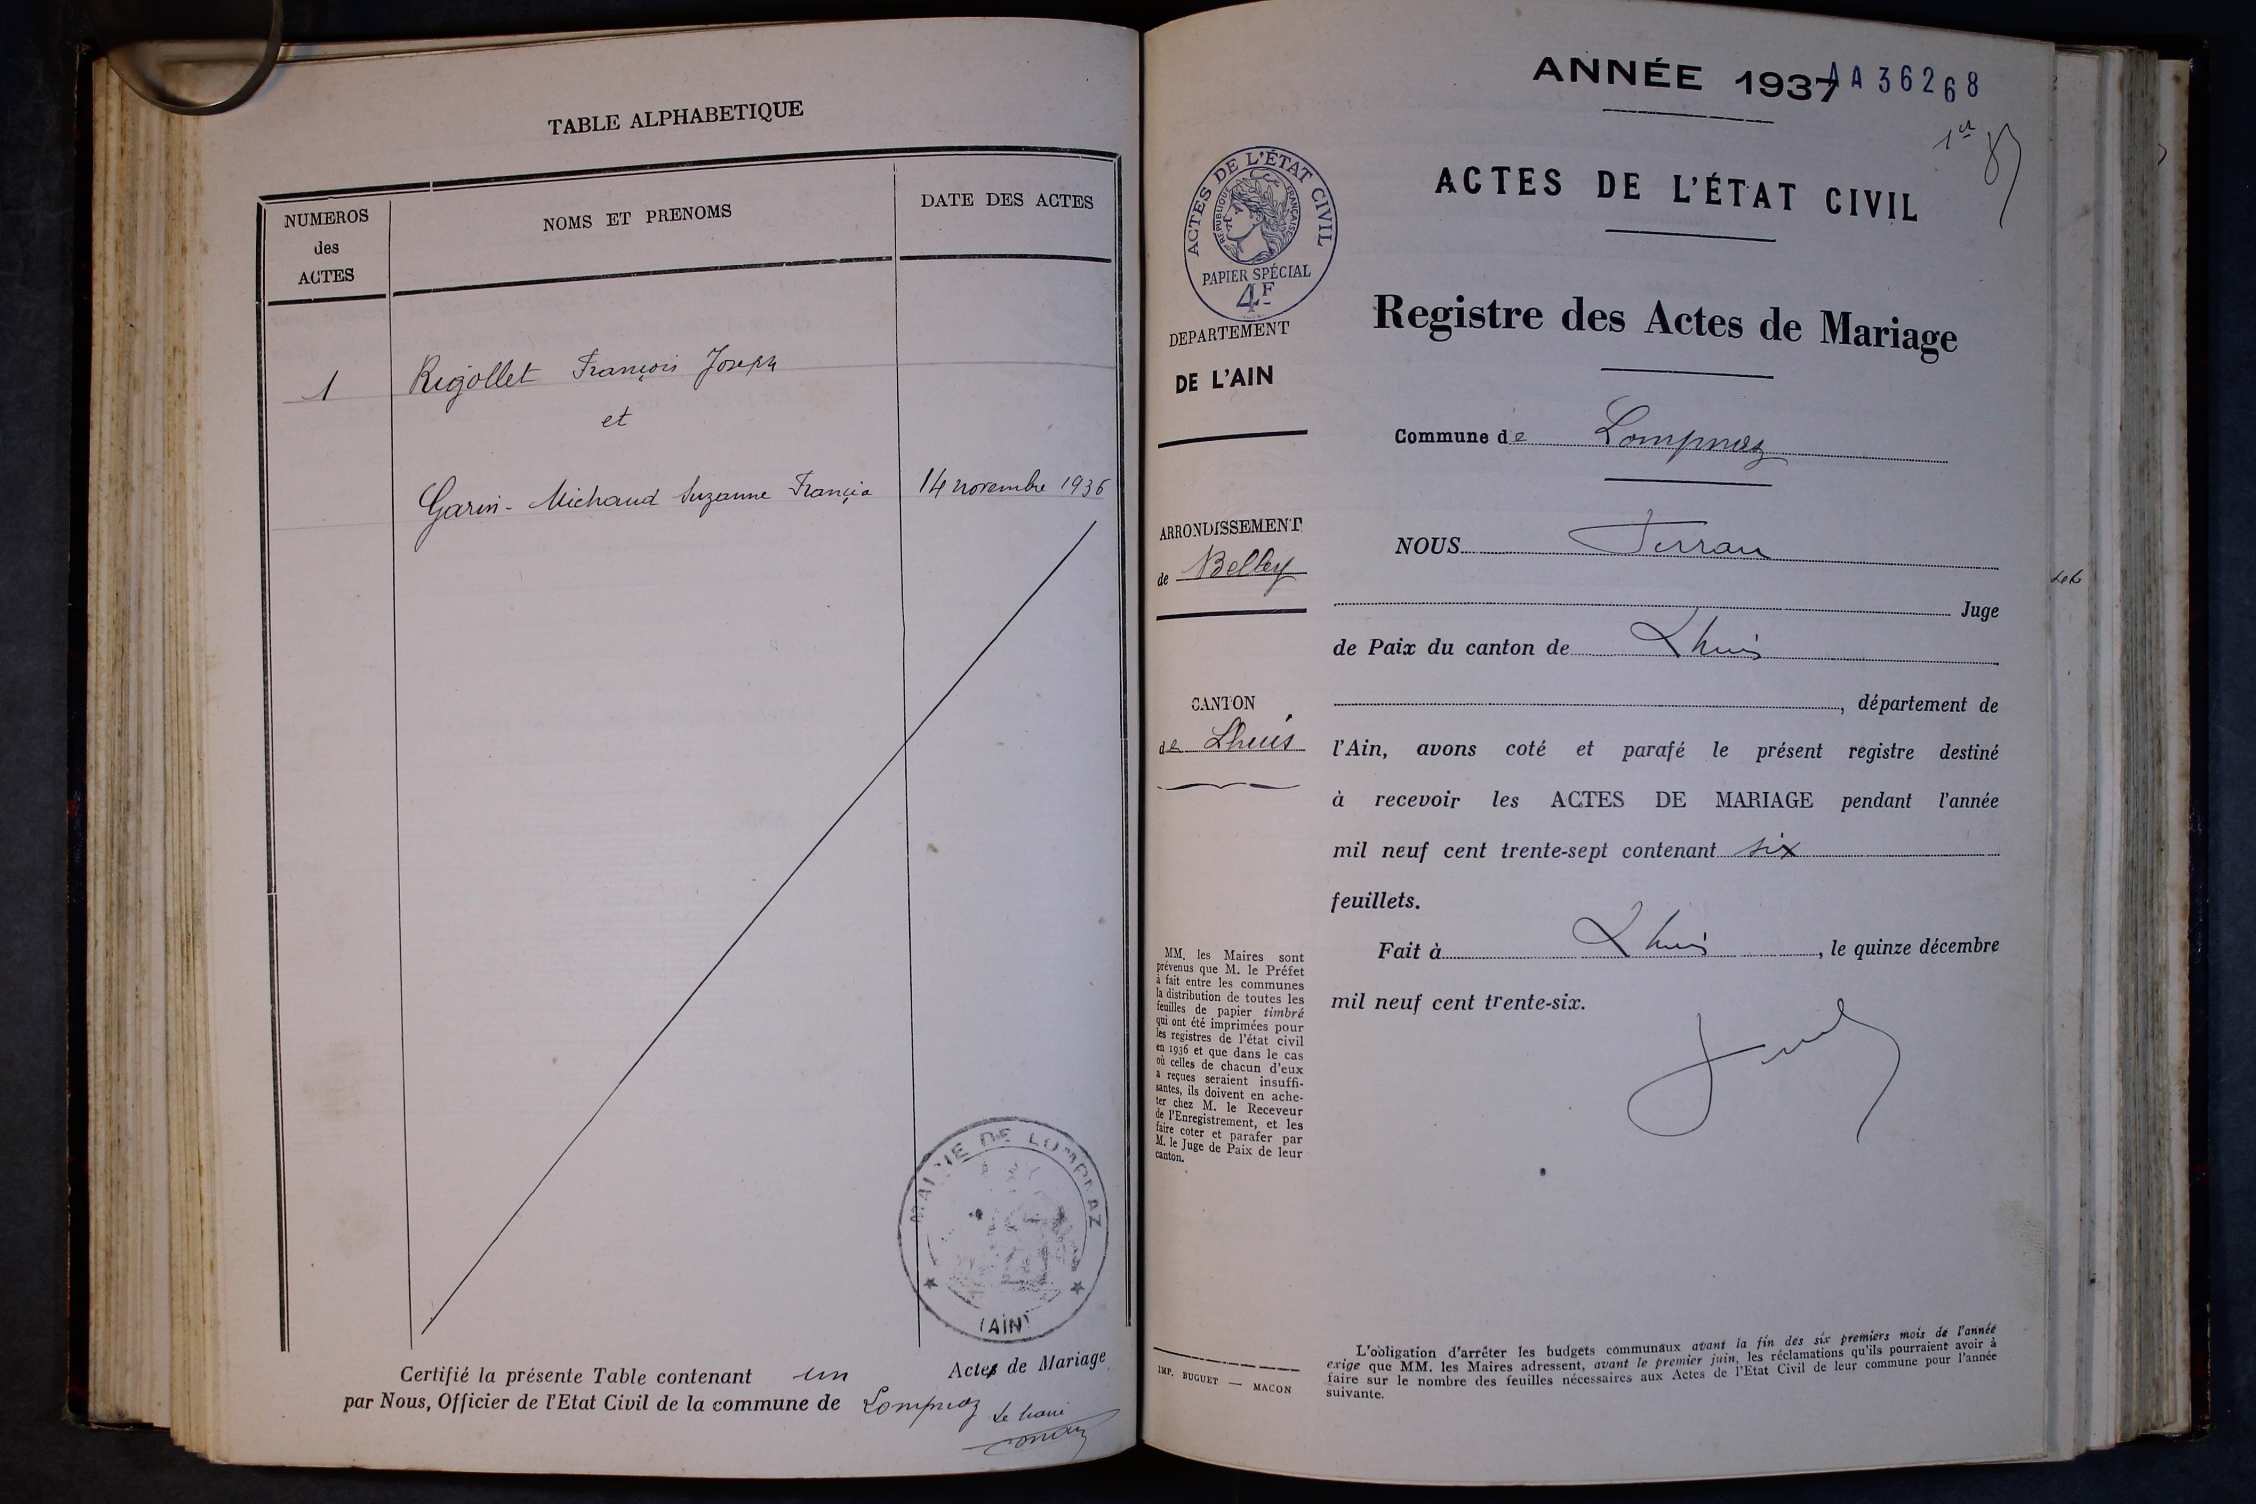 TABLE ALPHABETIQUE
NUMEROS
des
ACTES
NOMS ET PRENOMS
DATE DES ACTES
1
Rigollet François Joseph
et
Garin-Michaud Suzanne Francia
14 novembre 1936
MAIRIE DE LOMPNAZ
(AIN)
Certifié la présente Table contenant un Actes de Mariage
par Nous, Officier de l'Etat Civil de la commune de Lompnaz
Le Maire
ANNÉE 1937
AA 36268
1er
ACTES DE L'ÉTAT CIVIL
RÉPUBLIQUE FRANÇAISE
PAPIER SPÉCIAL
4F
ACTES DE L'ÉTAT CIVIL
Registre des Actes de Mariage
DEPARTEMENT
DE L'AIN
Commune de Lompnaz
ARRONDISSEMENT
de Belley
CANTON
de Lhuis
NOUS
Juge
de Paix du canton de Lhuis
, département de
l'Ain, avons coté et parafé le présent registre destiné
à recevoir les ACTES DE MARIAGE pendant l'année
mil neuf cent trente-sept contenant six
feuillets.
Fait à Lhuis, le quinze décembre
mil neuf cent trente-six.
MM. les Maires sont
prévenus que M. le Préfet
à fait entre les communes
la distribution de toutes les
feuilles de papier timbré
qui ont été imprimées pour
les registres de l'état civil
en 1936 et que dans le cas
où celles de chacun d'eux
a reçues seraient insuffi-
santes, ils doivent en ache-
ter chez M. le Receveur
de l'Enregistrement, et les
faire coter et parafer par
M. le Juge de Paix de leur
canton.
IMP. BUGUET — MACON
L'obligation d'arrêter les budgets communaux avant la fin des six premiers mois de l'année
exige que MM. les Maires adressent, avant le premier juin, les réclamations qu'ils pourraient avoir à
faire sur le nombre des feuilles nécessaires aux Actes de l'Etat Civil de leur commune pour l'année
suivante.